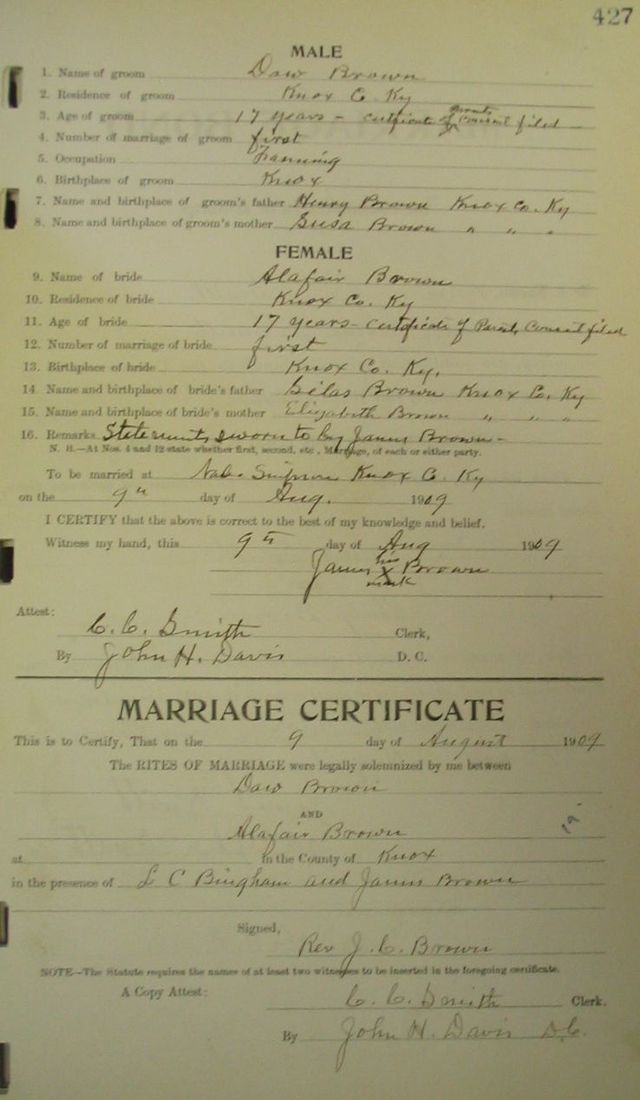 427
MALE
1. Name of groom Daw Brown
2. Residence of groom Knox Co Ky
3. Age of groom 17 years - certificate of parents consent filed
4. Number of marriage of groom first
5. Occupation Farming
6. Birthplace of groom Knox
7. Name and birthplace of groom's father Henry Brown Knox Co. Ky
8. Name and birthplace of groom's mother Susa Brown " " "
FEMALE
9. Name of bride Alafair Brown
10. Residence of bride Knox Co. Ky
11. Age of bride 17 years - certificate of Parents Consent filed
12. Number of marriage of bride first
13. Birthplace of bride Knox Co. Ky.
14. Name and birthplace of bride's father Silas Brown Knox Co. Ky
15. Name and birthplace of bride's mother Elizabeth Brown " " "
16. Remarks Statements sworn to by James Brown -
N. B.—At Nos. 4 and 12 state whether first, second, etc., Marriage, of each or either party.
To be married at Knox Co Ky
on the 9th day of Aug. 1909
I CERTIFY that the above is correct to the best of my knowledge and belief.
Witness my hand, this 9th day of Aug 1909
James his X mark Brown
Attest:
C. C. Smith Clerk,
By John H. Davis D. C.
MARRIAGE CERTIFICATE
This is to Certify, That on the 9 day of August 1909
The RITES OF MARRIAGE were legally solemnized by me between
Daw Brown
AND
Alafair Brown
at in the County of Knox
in the presence of L C Bingham and James Brown
Signed,
Rev J. C. Brown
NOTE—The Statute requires the names of at least two witnesses to be inserted in the foregoing certificate.
A Copy Attest: C. C. Smith Clerk.
By John H. Davis D.C.